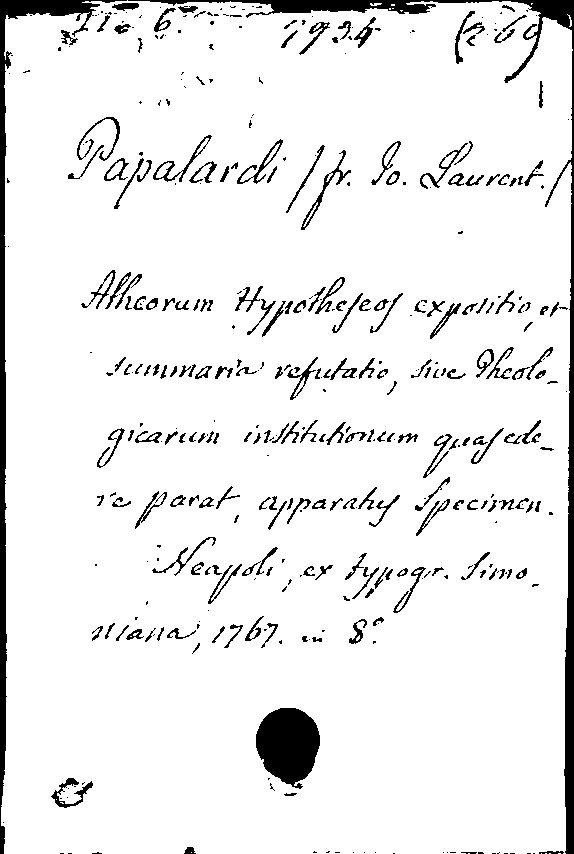 21. 6. 1934 (269
Papalardi /fr. Jo. Laurent./
Atheorum Hypotheseos expositio, et
summaria refutatio, sive Theolo-
gicarum institutionum quas ede-
re parat, apparatus Specimen.
Neapoli, ex typogr. Simo-
niana, 1767. in 8°.